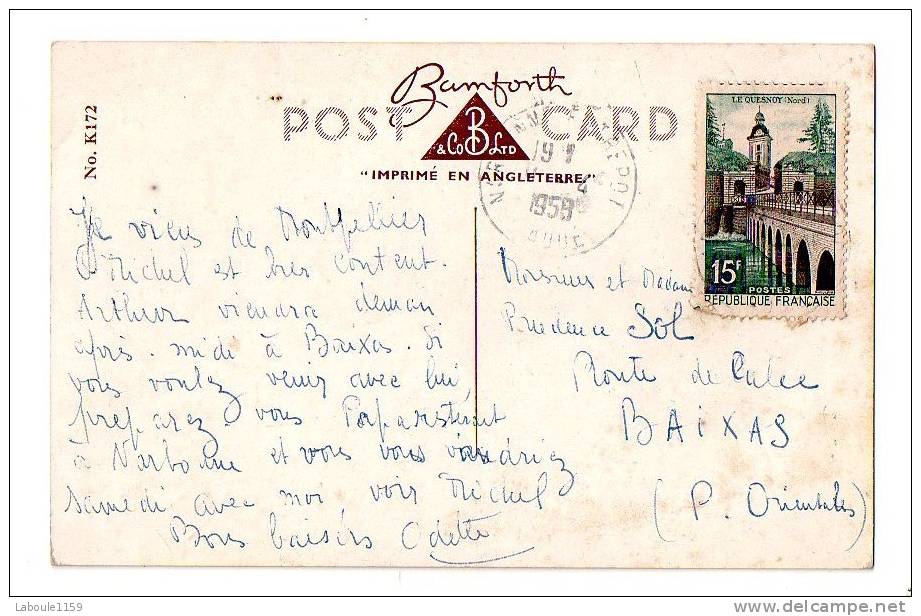 Bamforth
POST CARD
B
& Co LTD
"IMPRIMÉ EN ANGLETERRE"
No. K172
LE QUESNOY (Nord)
15F
POSTES
RÉPUBLIQUE FRANÇAISE
19
1958
AUDE
Je viens de Montpellier
Michel est très content.
Arthur viendra demain
après-midi à Baixas. Si
vous voulez venir avec lui,
preparez vous
à Narbonne et vous
samedi avec moi voir Michel
Bons baisers Odette
Monsieur et Madame
Prudence Sol
Route de Calce
BAIXAS
(P. Orientales)
Laboule1159
www.delcampe.net